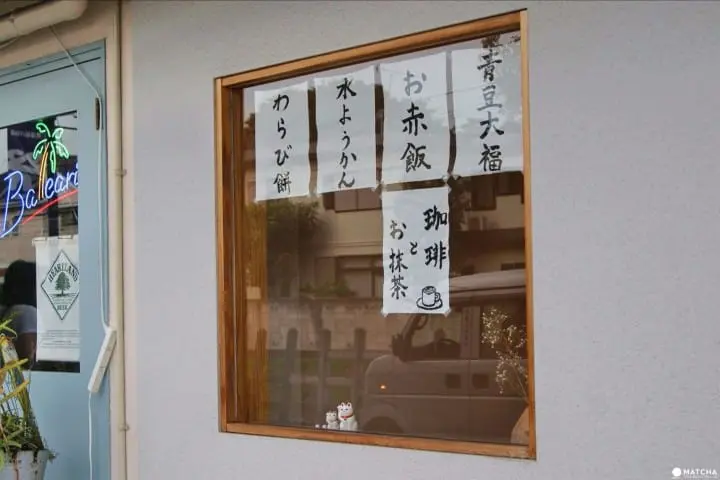 青豆大福
お赤飯
水ようかん
わらび餅
珈琲
と
お抹茶
Baleari
HEARTLAND
BEER
MATCHA